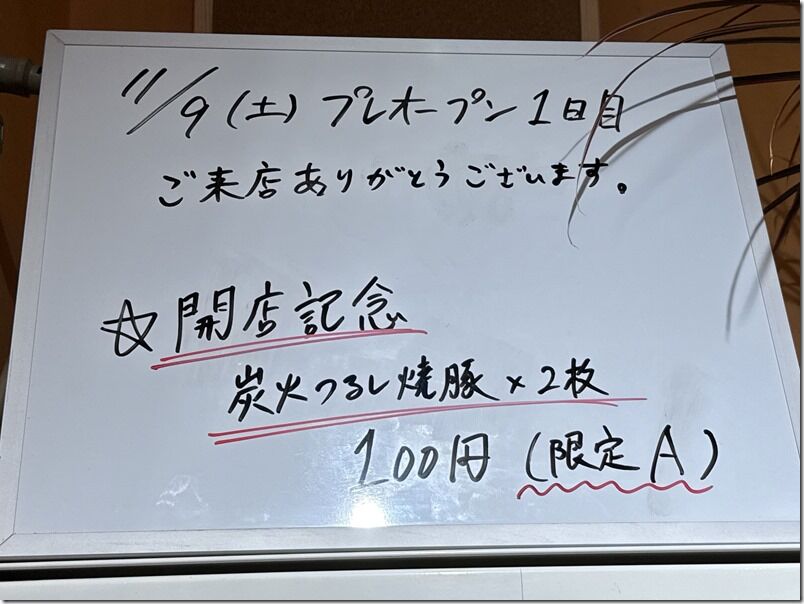 11/9(土)プレオープン1日目
ご来店ありがとうございます。
☆開店記念
炭火つるし焼豚×2枚
100円(限定A)